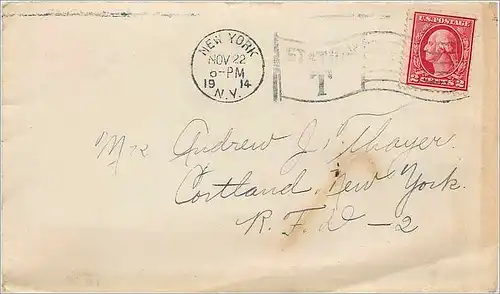 NEW YORK
NOV 22
6-PM
1914
N.Y.
STATION
T
U.S. POSTAGE
2 CENTS 2
Mr Andrew J. Thayer.
Cortland, New York.
R. F. D - 2